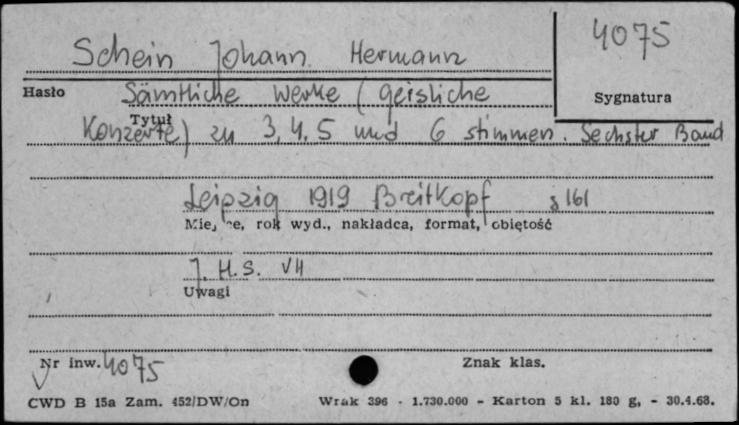 Schein Johann Hermann
4075
Hasło
Sygnatura
Sämtliche Werke (geistliche
Tytuł
Konzerte) zu 3, 4, 5 und 6 stimmen. Sechster Band
Leipzig 1919 Breitkopf s 161
Miejsce, rok wyd., nakładca, format, objętość
J. H. S. VII
Uwagi
Nr inw. 4075
Znak klas.
CWD B 15a Zam. 452/DW/On
Wrak 396 - 1.730.000 - Karton 5 kl. 180 g, - 30.4.68.